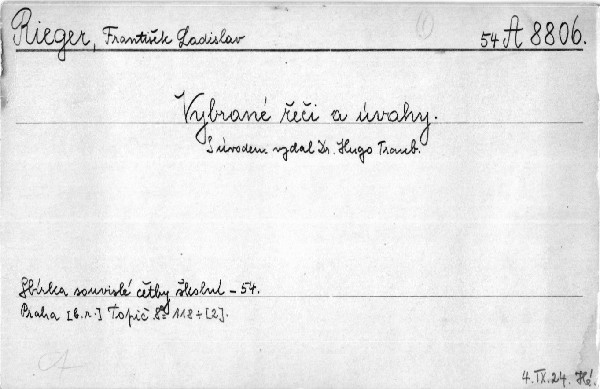 Rieger, František Ladislav (1) 54 A 8806.
Vybrané řeči a úvahy.
S úvodem vydal Dr. Hugo Traub.
Sbírka souvislé četby školní - 54.
Praha [b.r.] Topič 8° 118+[2].
4.IX.24. Hé.